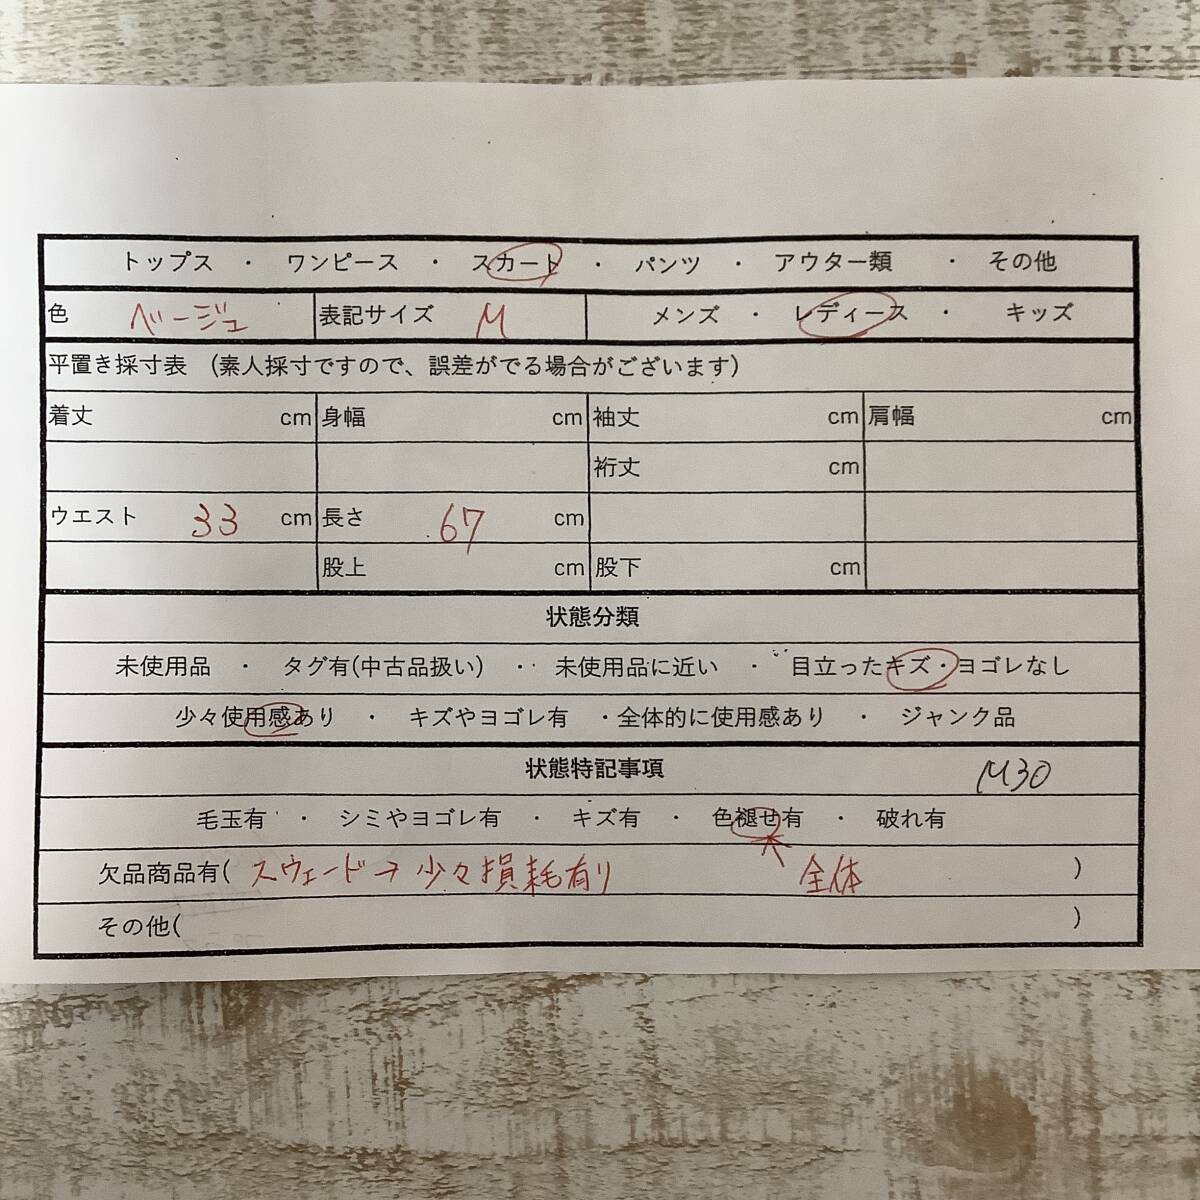 トップス ・ ワンピース ・ スカート ・ パンツ ・ アウター類 ・ その他
色 ベージュ 表記サイズ M メンズ ・ レディース ・ キッズ
平置き採寸表 (素人採寸ですので、誤差がでる場合がございます)
着丈 cm 身幅 cm 袖丈 cm 肩幅 cm
裄丈 cm
ウエスト 33 cm 長さ 67 cm
股上 cm 股下 cm
状態分類
未使用品 ・ タグ有(中古品扱い) ・ 未使用品に近い ・ 目立ったキズ・ヨゴレなし
少々使用感あり ・ キズやヨゴレ有 ・全体的に使用感あり ・ ジャンク品
状態特記事項 M30
毛玉有 ・ シミやヨゴレ有 ・ キズ有 ・ 色褪せ有 ・ 破れ有
欠品商品有( スウェード→少々損耗有り 全体 )
その他( )